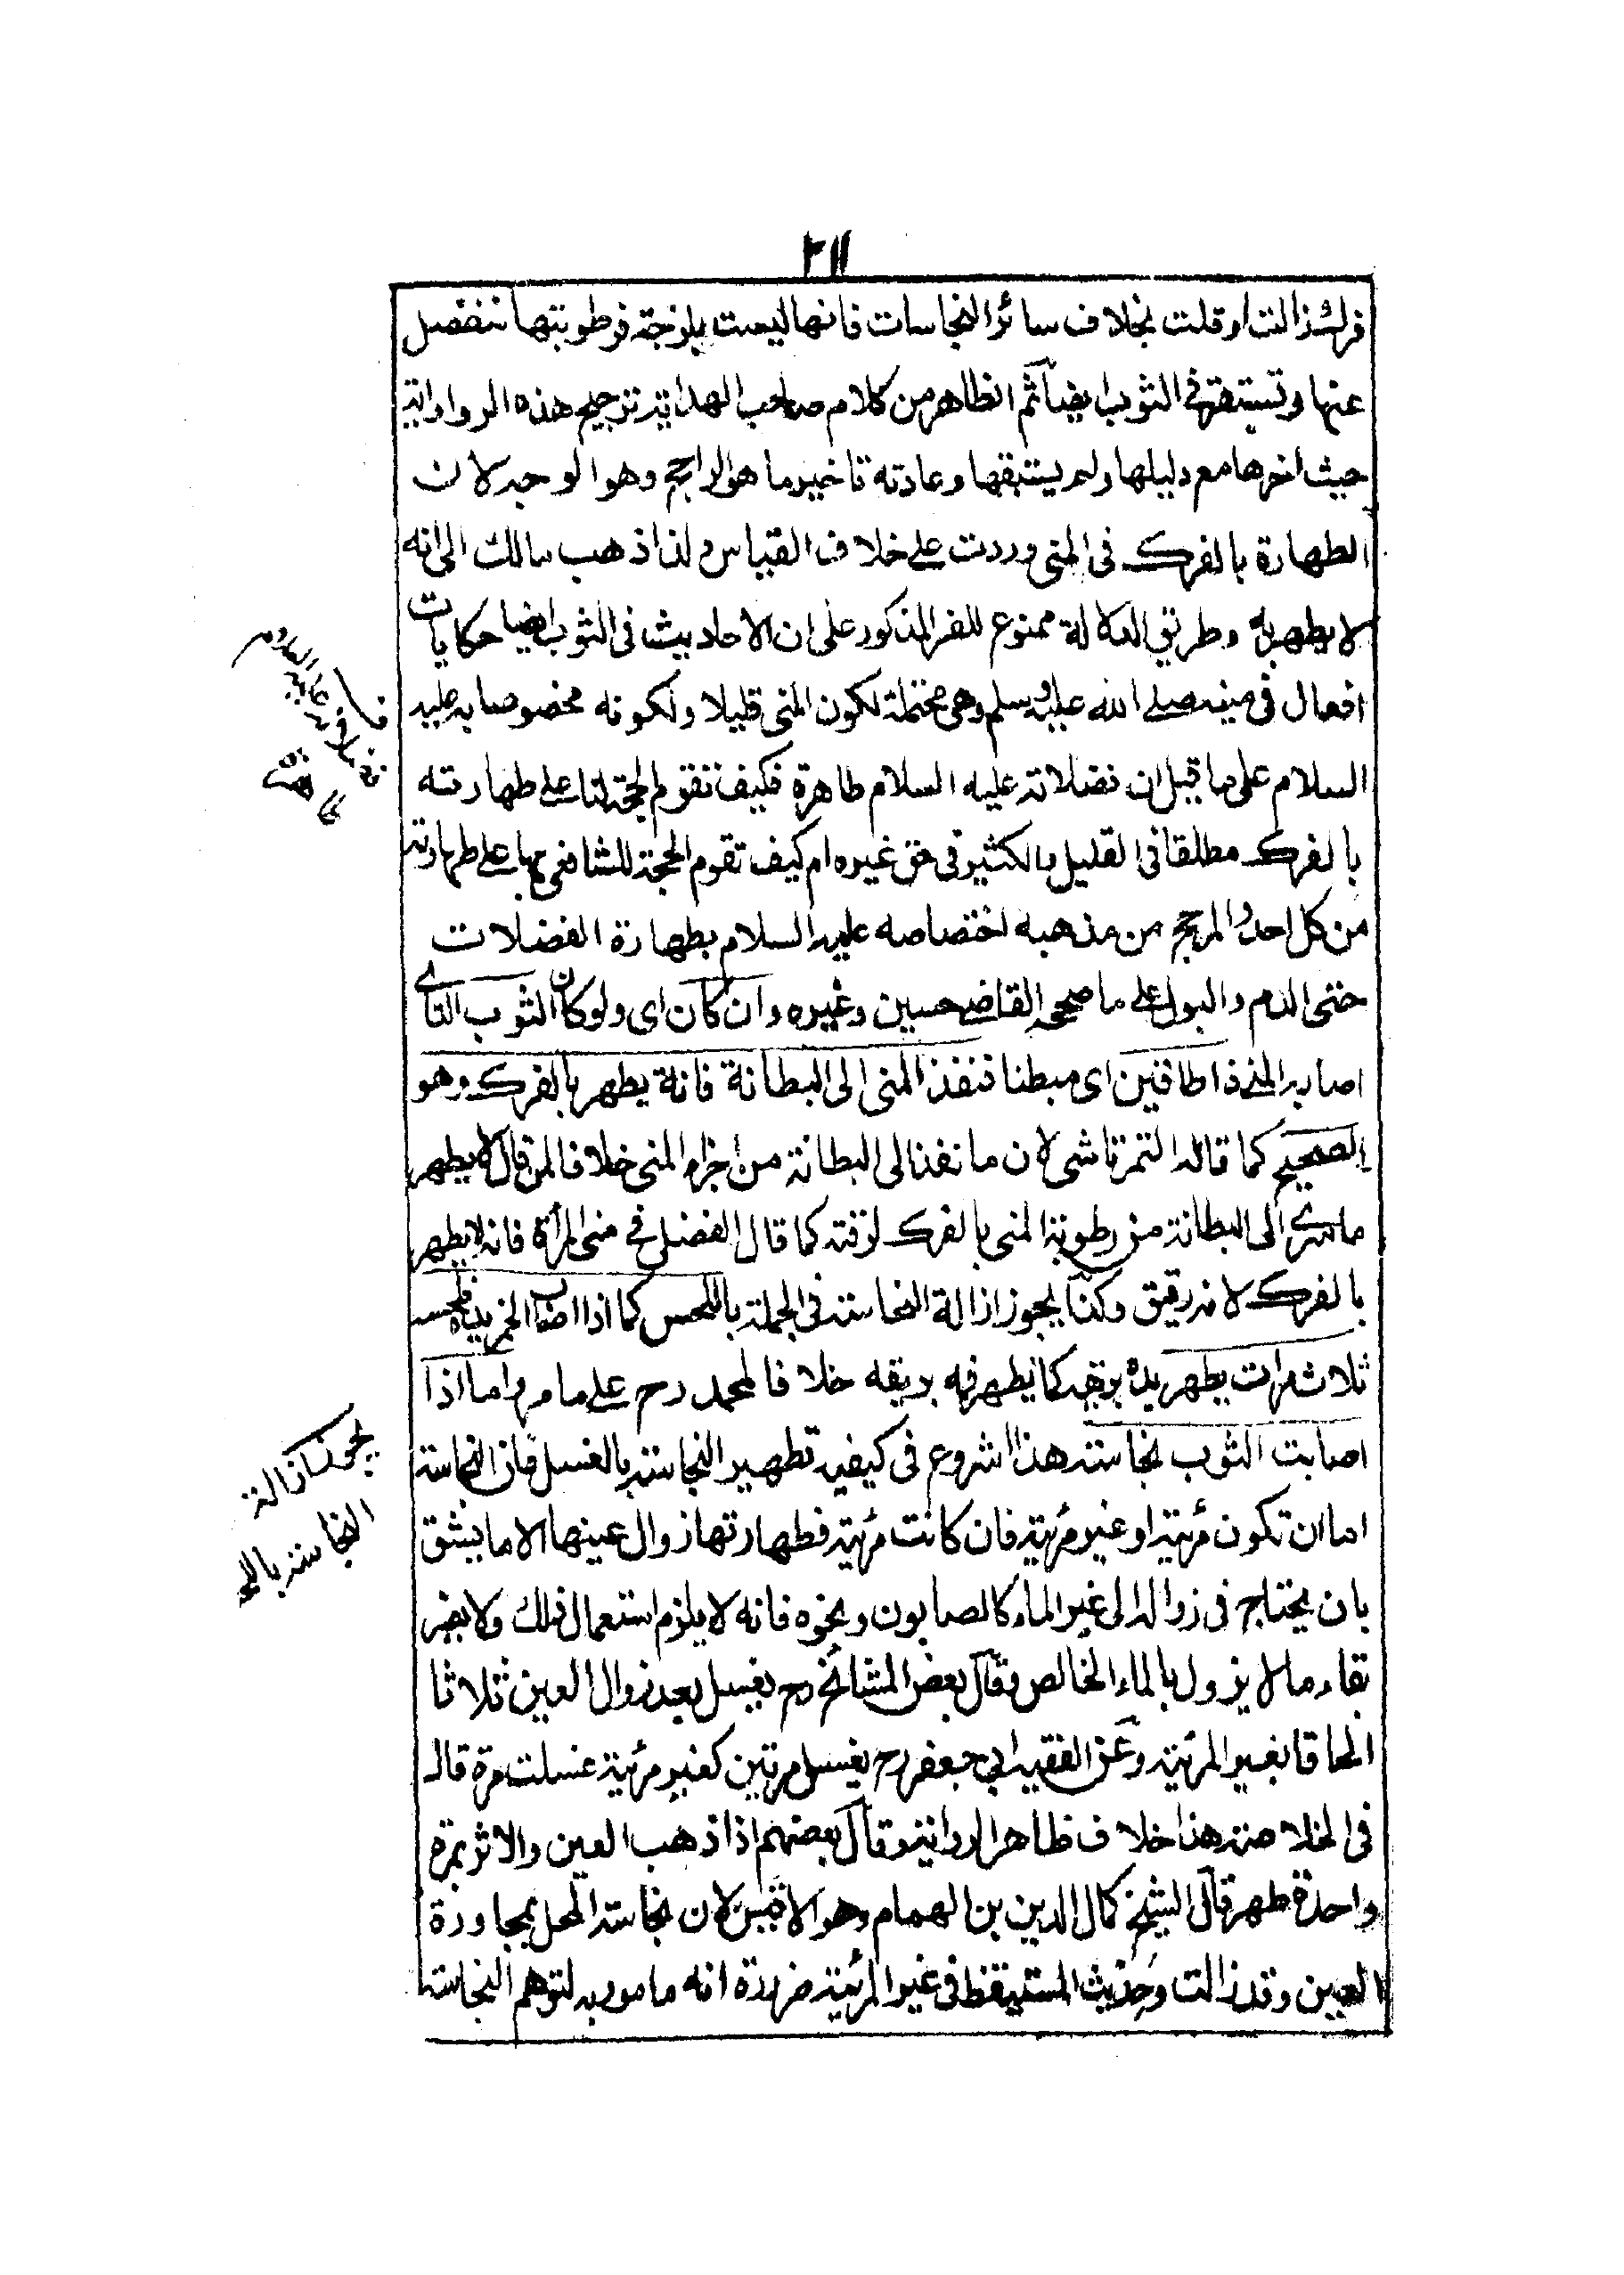 ٢١١
فرك زالت او قلت بخلاف سائر النجاسات فانها ليست بلزجة فرطوبتها تنفصل
عنها وتستقر في الثوب ايضا ثم الظاهر من كلام صاحب الهداية ترجيح هذه الرواية
حيث اخرها مع دليلها ولم يستبقها وعادته تاخير ما هو الراجح وهو الوجه لان
الطهارة بالفرك في المني وردت على خلاف القياس ولذا ذهب مالك الى انه
لا يطهر به وطريق الدلالة ممنوع للفر المذكور على ان الاحاديث في الثوب ايضا حكايات
افعال في منيه صلى الله عليه وسلم وهي محتملة لكون المني قليلا ولكونه مخصوصا به عليه
السلام على ما قيل ان فضلاته عليه السلام طاهرة فكيف تقوم الحجة لنا على طهارته
بالفرك مطلقا في القليل والكثير في حق غيره ام كيف تقوم الحجة للشافعي بها على طهارته
من كل احد والمرجح من مذهبه اختصاصه عليه السلام بطهارة الفضلات
حتى الدم والبول على ما صححه القاضي حسين وغيره وان كان اى ولو كان الثوب الذى
اصابه المني ذا طاقين اى مبطنا فنفذ المني الى البطانة فانه يطهر بالفرك وهو
الصحيح كما قاله التمرتاشي لان ما نفذ الى البطانة من اجزاء المني خلافا لمن قال لا يطهر
ما سرى الى البطانة من رطوبة المني بالفرك لرقته كما قال الفضلي في مني المرأة فانه لا يطهر
بالفرك لانه رقيق وكذا يجوز ازالة النجاسة في الجملة باللحس كما اذا اصاب الخمر يده فلحسه
ثلاث مرات يطهر يده بريقه كما يطهر فمه بريقه خلافا لمحمد رح على ما مر واما اذا
اصابت الثوب نجاسة هذا شروع في كيفية تطهير النجاسة بالغسل فان النجاسة
اما ان تكون مرئية او غير مرئية فان كانت مرئية فطهارتها زوال عينها الا ما يشق
بان يحتاج في زواله الى غير الماء كالصابون ونحوه فانه لا يلزم استعمال ذلك ولا يضر
بقاء ما لا يزول بالماء الخالص وقال بعض المشائخ رح يغسل بعد زوال العين ثلاثا
الحاقا بغير المرئية وعن الفقيه ابي جعفر رح يغسل مرتين كغير مرئية غسلت مرة قال
في الخلاصة هذا خلاف ظاهر الرواية وقال بعضهم اذا ذهب العين والاثر بمرة
واحدة طهر قال الشيخ كمال الدين بن الهمام وهو الاقيس لان نجاسة المحل بمجاورة
العين وقد زالت وحديث المستيقظ في غير المرئية ضرورة انه مامور به لتوهم النجاسة
فضلاته عليه السلام
طاهرة
يجوز ازالة
النجاسة